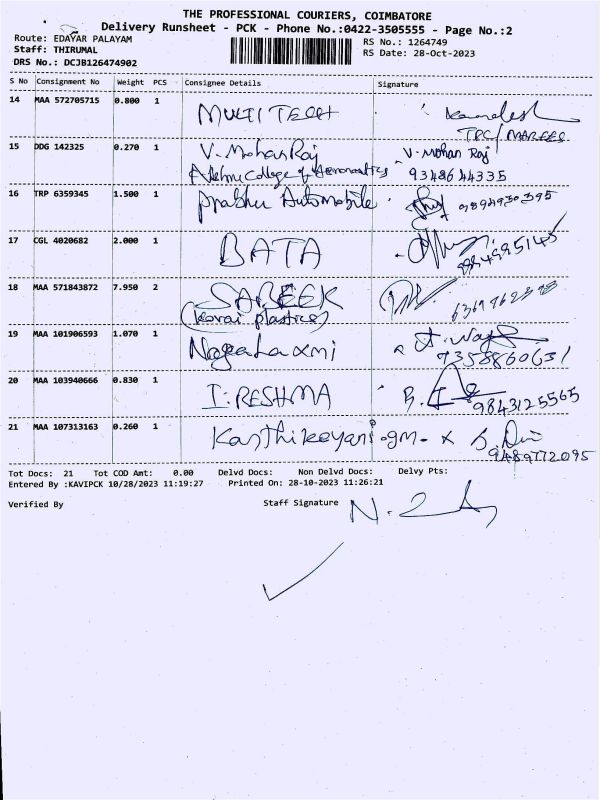 THE PROFESSIONAL COURIERS, COIMBATORE
Delivery Runsheet - PCK - Phone No.:0422-3505555 - Page No.:2
Route: EDAYAR PALAYAM
RS No.: 1264749
Staff: THIRUMAL
RS Date: 28-Oct-2023
DRS No.: DCJB126474902
S No Consignment No Weight PCS Consignee Details Signature
14 MAA 572705715 0.800 1 MULTI TECH
15 DDG 142325 0.270 1 V. Mohan Raj V. Mohan Raj
College of Aeronautics 9348644335
16 TRP 6359345 1.500 1 Prabhu Automobile 9894930395
17 CGL 4020682 2.000 1 BATA
18 MAA 571843872 7.950 2 SAREEK
(Kovai plastics)
19 MAA 101906593 1.070 1 Nagalaxmi
7358860631
20 MAA 103940666 0.830 1 I. RESHMA
9843125565
21 MAA 107313163 0.260 1 Karthikeyani.gm. x
9489772095
Tot Docs: 21 Tot COD Amt: 0.00 Delvd Docs: Non Delvd Docs: Delvy Pts:
Entered By :KAVIPCK 10/28/2023 11:19:27 Printed On: 28-10-2023 11:26:21
Verified By Staff Signature